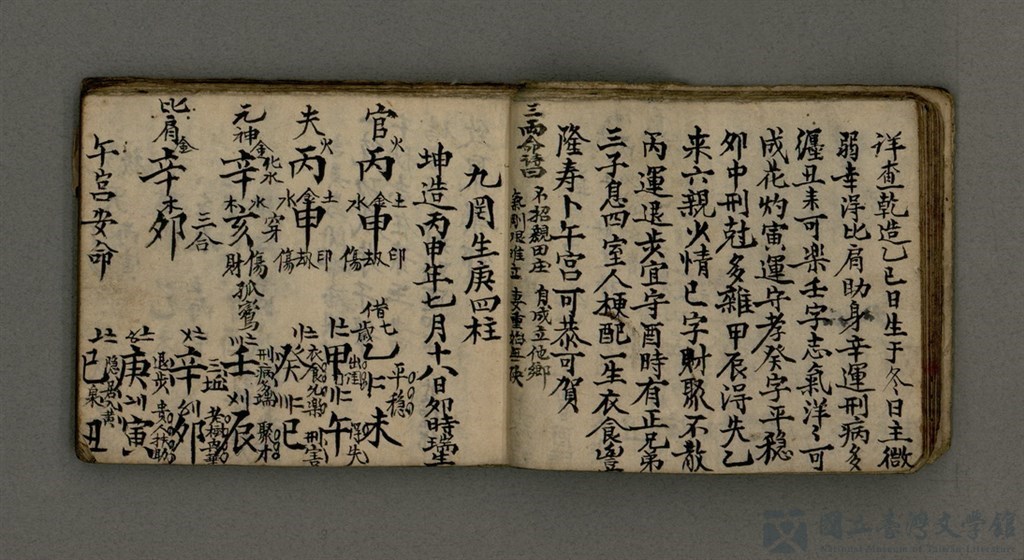 詳查乾造乙巳日生于冬日主微
弱幸淂比肩助身辛運刑病多
纏丑未可樂壬字志氣洋〻可
成花灼寅運守孝癸字平穩
夘中刑尅多雜甲辰淂失乙
来六親火情巳字財聚不散
丙運退步宜守酉時有正兄弟
三子息四室人梗配一生衣食豐
隆寿卜午宮可恭可賀
三両命
不招親田庄 自成立他鄉
九罔生庚四柱
坤造丙申年七月十八日夘時瑞生
官 丙申
火 土金水
印劫傷
夫 丙申
火 土金水
印劫傷
元神 辛亥
金 化水 水木
穿 三合
傷財 孤鸞
比肩 辛夘
金 木
午宮安命
借七歲
乙未 平穩
甲午 淂失
癸巳 衣食
刑害
壬辰 刑病
聚木
辛夘
庚寅 退步
己丑